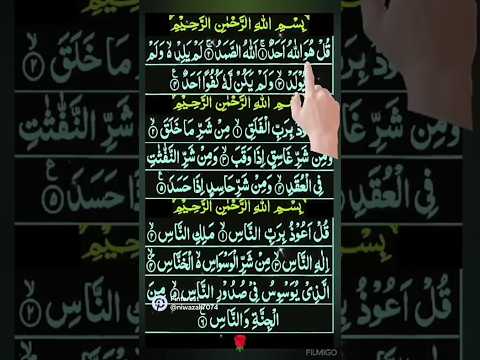 بِسْمِ اللهِ الرَّحْمٰنِ الرَّحِيْمِ
قُلْ هُوَ اللهُ اَحَدٌ ۱ اَللهُ الصَّمَدُ ۲ لَمْ يَلِدْ ۵ وَلَمْ
يُوْلَدْ ۳ وَلَمْ يَكُنْ لَّهٗ كُفُوًا اَحَدٌ ۴
بِسْمِ اللهِ الرَّحْمٰنِ الرَّحِيْمِ
بِرَبِّ الْفَلَقِ ۱ مِنْ شَرِّ مَا خَلَقَ ۲
وَمِنْ شَرِّ غَاسِقٍ اِذَا وَقَبَ ۳ وَمِنْ شَرِّ النَّفّٰثٰتِ
فِى الْعُقَدِ ۴ وَمِنْ شَرِّ حَاسِدٍ اِذَا حَسَدَ ۵
بِسْمِ اللهِ الرَّحْمٰنِ الرَّحِيْمِ
قُلْ اَعُوْذُ بِرَبِّ النَّاسِ ۱ مَلِكِ النَّاسِ ۲
اِلٰهِ النَّاسِ ۳ مِنْ شَرِّ الْوَسْوَاسِ ۵ الْخَنَّاسِ ۴
الَّذِىْ يُوَسْوِسُ فِىْ صُدُوْرِ النَّاسِ ۵ مِنَ
الْجِنَّةِ وَالنَّاسِ ۶
@niwazali7074
FILMIGO